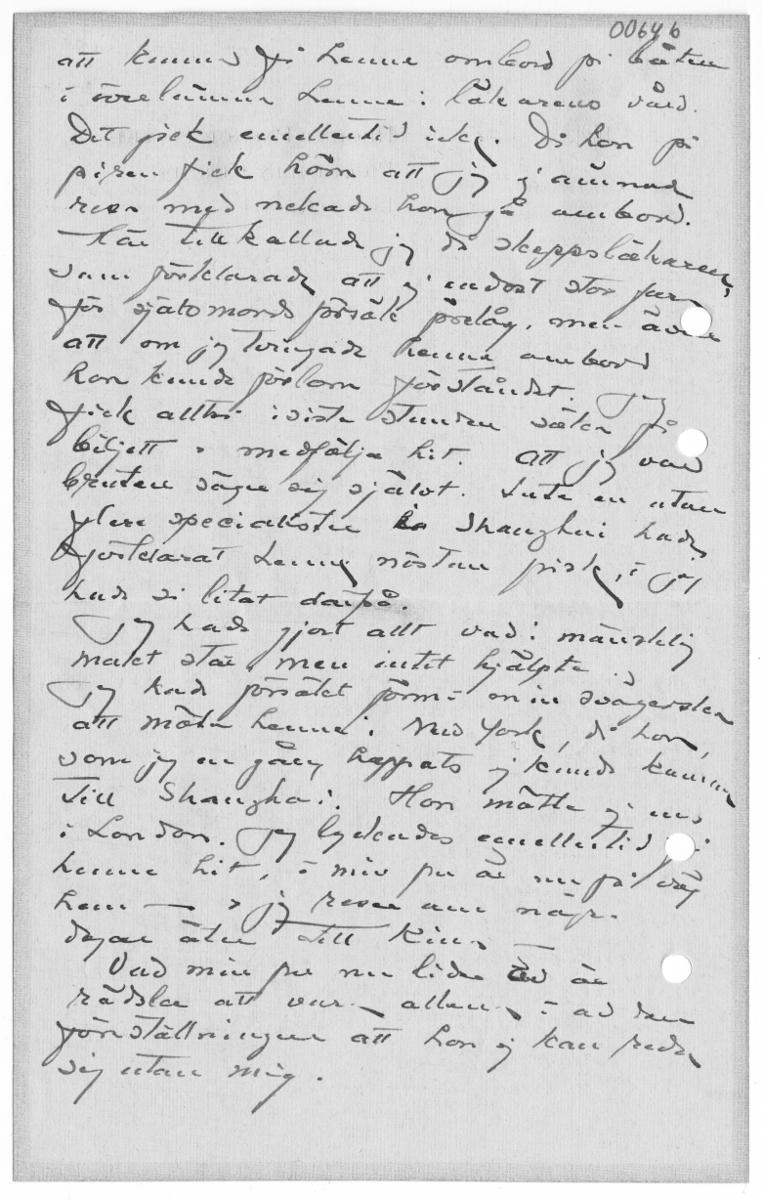 00646
att kunna få henne ombord på båten
i överlämna henne i läkarens vård.
Det gick emellertid icke. Då hon på
piren fick höra att jag ej ämnade
resa med nekade hon gå ombord.
Här tillkallade jag då skeppsläkaren,
som förklarade att ej endast stor fara
för självmordsförsök förelåg, men även
att om jag tvingade henne ombord
hon kunde förlora förståndet. Jag
fick alltså i sista stunden söka få
biljett o medfölja hit. Att jag var
bruten säger sig självt. Inte en utan
flere specialister i Shanghai hade
förklarat henne nästan frisk, i jag
hade så litat därpå.
Jag hade gjort allt vad i mänsklig
makt står, men intet hjälpte.
Jag hade försökt förmå min svägerska
att möta henne i New York, då hon,
som jag en gång hoppats ej kunde komma
till Shanghai. Hon mötte ej ens
i London. Jag lyckades emellertid få
henne hit, i min fru är nu på väg
hem — o jag reser om några
dagar åter till Kina.
Vad min fru nu lider av är
rädsla att vara allena i av den
föreställningen att hon ej kan reda
sig utan mig.